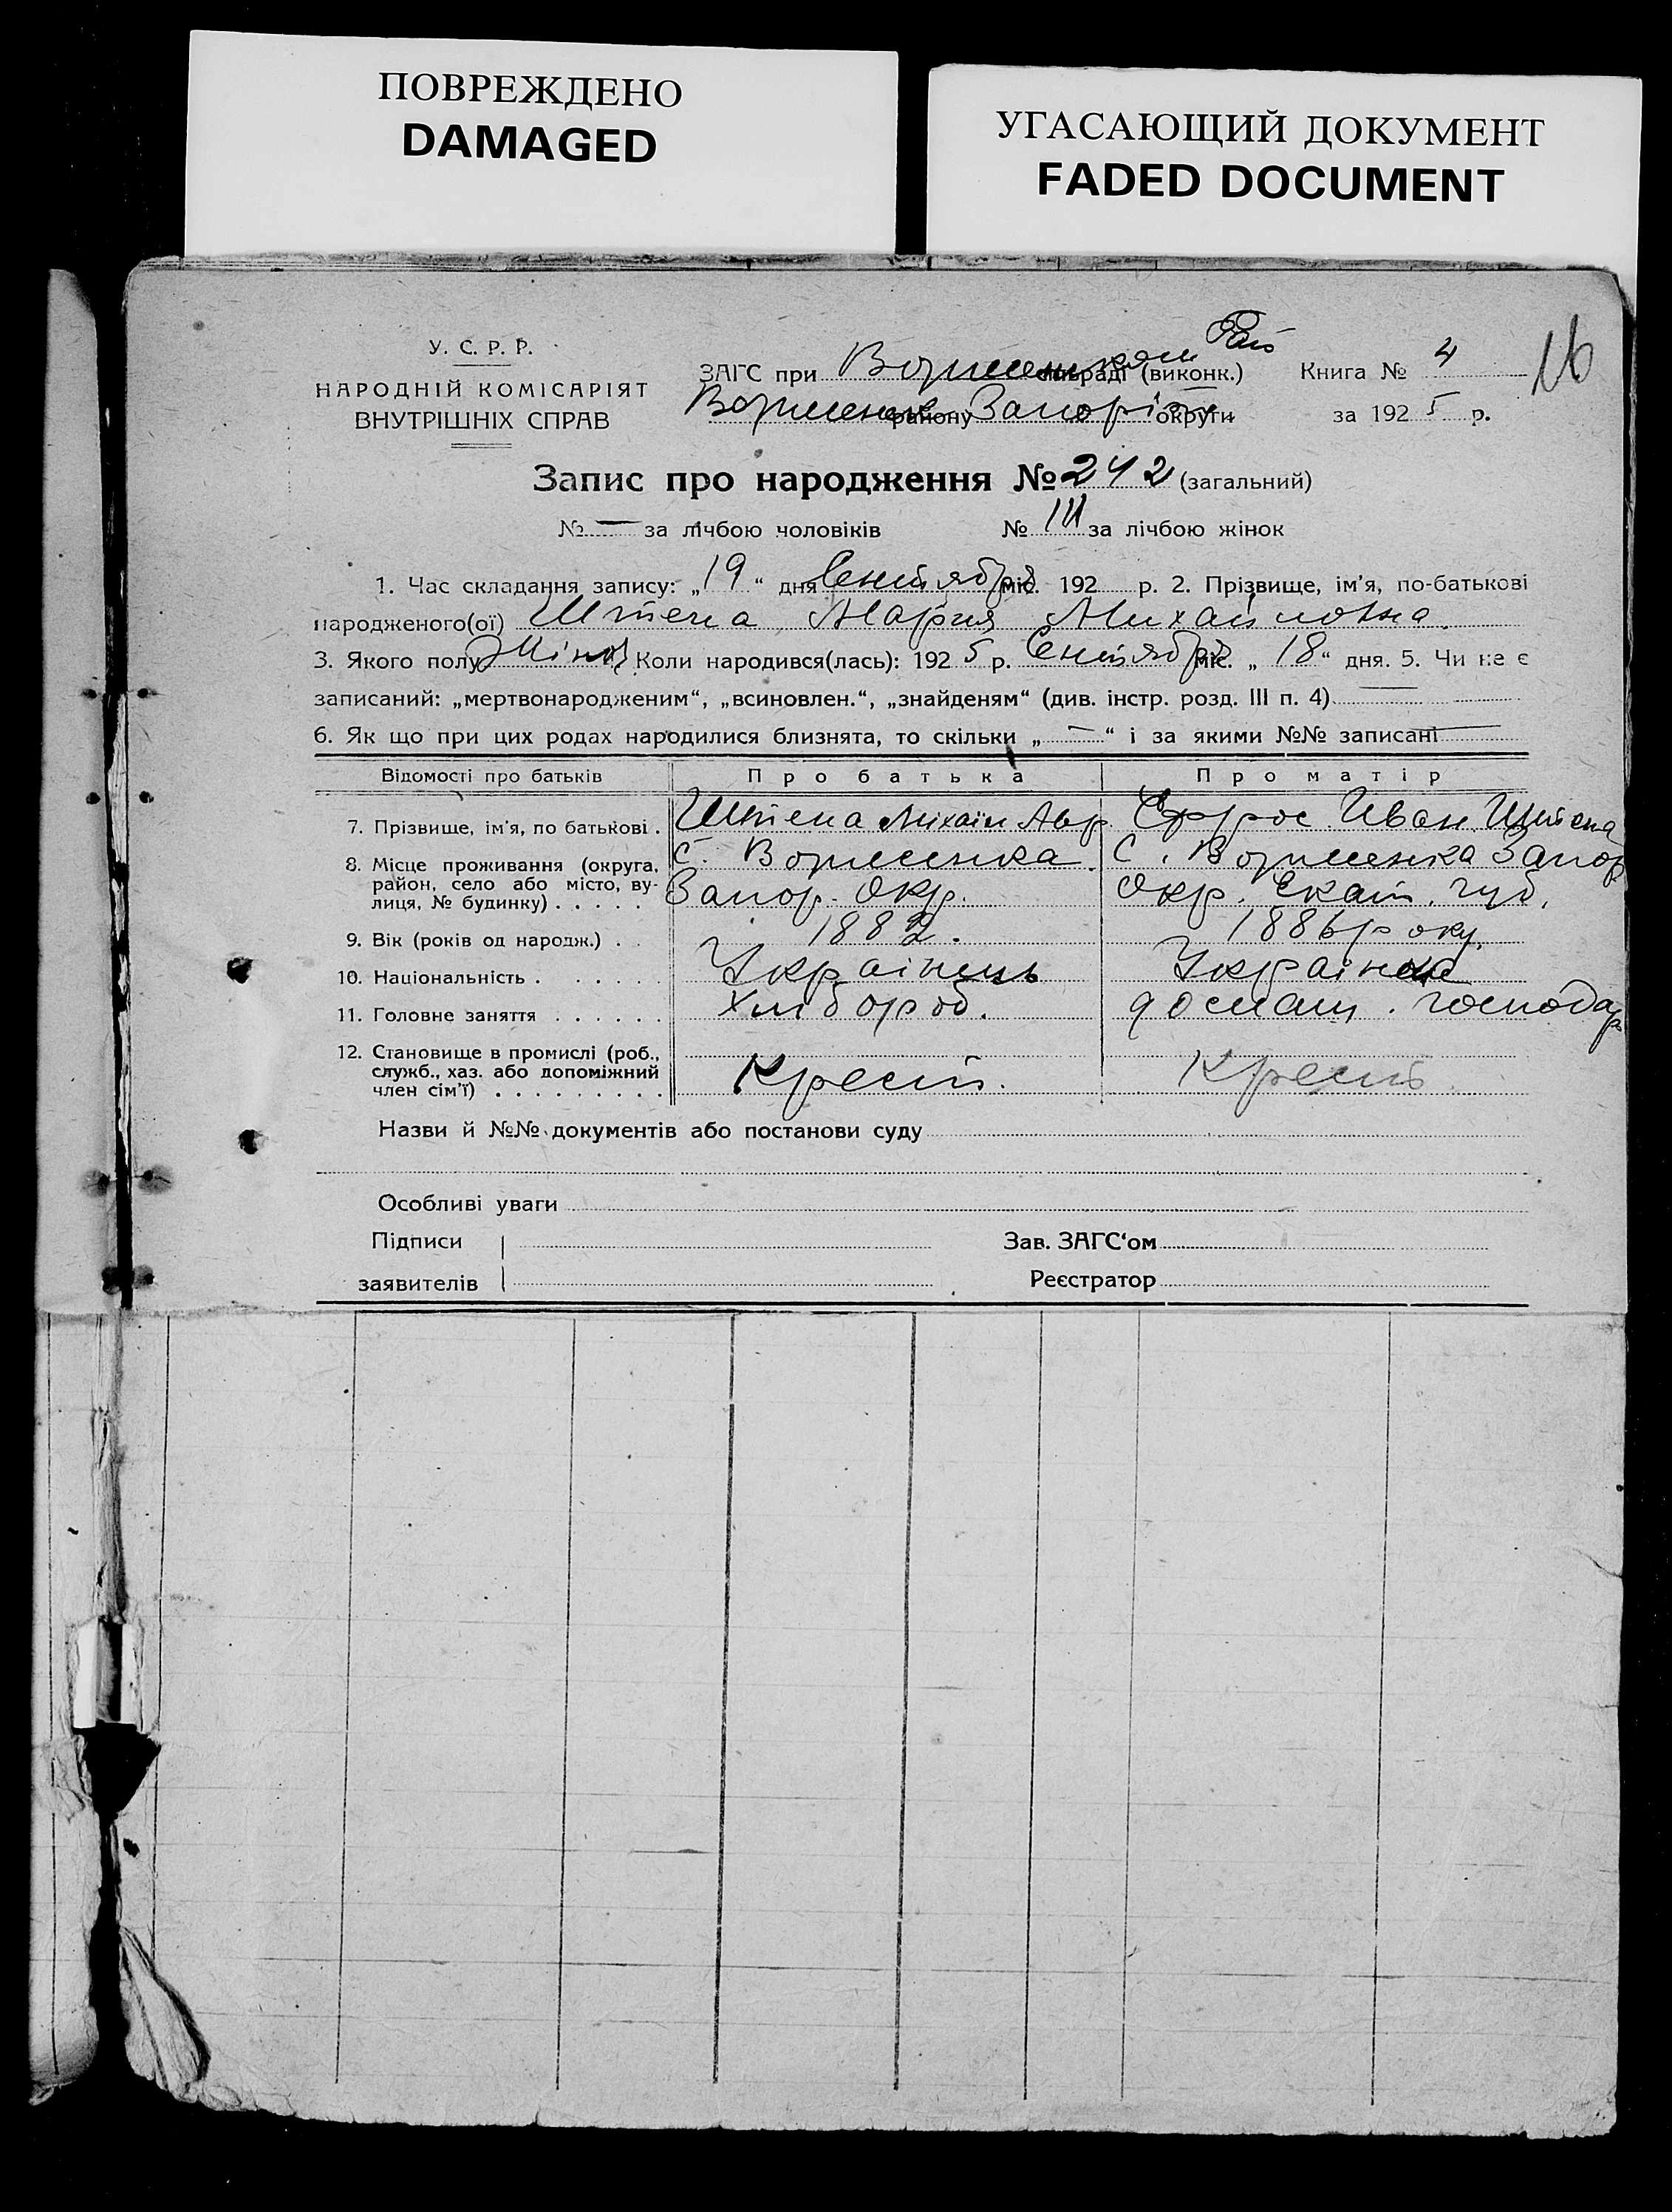 ПОВРЕЖДЕНО
DAMAGED
УГАСАЮЩИЙ ДОКУМЕНТ
FADED DOCUMENT
У. С. Р. Р.
НАРОДНІЙ КОМІСАРІЯТ
ВНУТРІШНІХ СПРАВ
ЗАГС при (виконк.)
району Запоріж. округи
Книга № 4
за 1925 р.
16
Запис про народження № 242 (загальний)
№ — за лічбою чоловіків № 111 за лічбою жінок
1. Час складання запису: „19“ дня Сентября міс. 192 р. 2. Прізвище, ім'я, по-батькові
народженого(ої) Штепа Мария Михайловна.
3. Якого полу Жіноч. Коли народився(лась): 1925 р. Сентября міс. „18“ дня. 5. Чи не є
записаний: „мертвонародженим“, „всиновлен.“, „знайденям“ (див. інстр. розд. III п. 4) —
6. Як що при цих родах народилися близнята, то скільки „—“ і за якими №№ записані —
Відомості про батьків Про батька Про матір
7. Прізвище, ім'я, по батькові . Штепа Міхаіл Авр Ефрос Иван Штепа
8. Місце проживання (округа, район, село або місто, вулиця, № будинку) . . . . . с. Запор. Окр. с. Запор Окр. Екат. губ.
9. Вік (років од народж.) . . 1882. 1886 року.
10. Національність . . . . . . Українець Українка
11. Головне заняття . . . . . . хлібороб. домаш. господар
12. Становище в промислі (роб., служб., хаз. або допоміжний член сім'ї) . . . . . . . . . Крест. Крест.
Назви й №№ документів або постанови суду
Особливі уваги
Підписи
заявителів
Зав. ЗАГС‘ом
Реєстратор